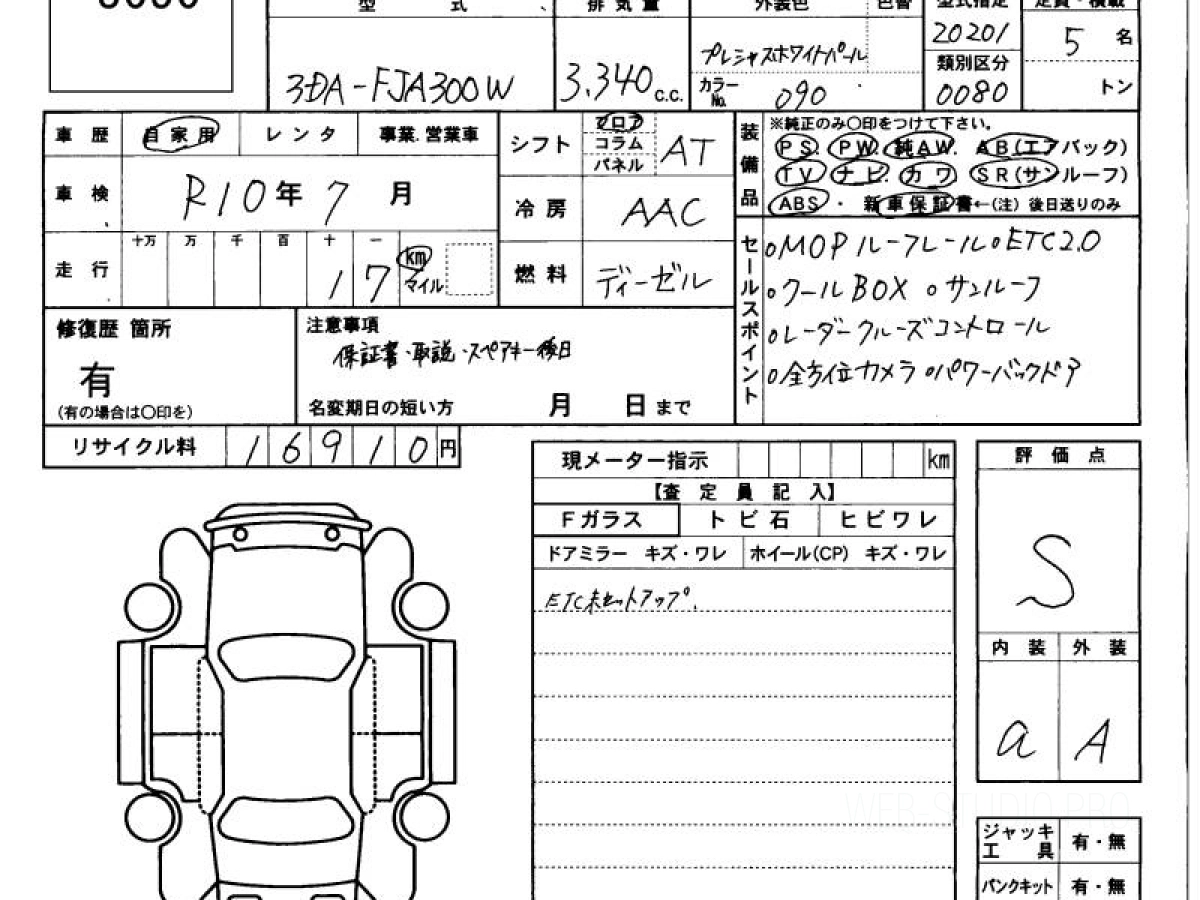 型 式 排気量 外装色 色替 型式指定 定員・積載
3DA-FJA300W 3,340 c.c. プレシャスホワイトパール 20201 5 名
カラーNo. 090 類別区分 0080 トン
車歴 自家用 レンタ 事業.営業車 シフト フロア コラム パネル AT
装備品 ※純正のみ〇印をつけて下さい。
PS. PW. 純AW. AB(エアバック)
TV ナビ. カワ SR(サンルーフ)
ABS ・ 新車保証書←(注) 後日送りのみ
車検 R10年 7 月 冷房 AAC
走行 十万 万 千 百 十 一
17 km マイル 燃料 ディーゼル
セールスポイント
○MOPルーフレール○ETC2.0
○クールBOX ○サンルーフ
○レーダークルーズコントロール
○全方位カメラ○パワーバックドア
修復歴 箇所
有
(有の場合は〇印を)
注意事項
保証書・取説・スペアキー後日
名変期日の短い方 月 日 まで
リサイクル料 16910円
現メーター指示 km
【査 定 員 記 入】
Fガラス トビ石 ヒビワレ
ドアミラー キズ・ワレ ホイール(CP) キズ・ワレ
ETC未セットアップ.
評価点
S
内装 外装
a A
ジャッキ工具 有・無
パンクキット 有・無
WEB STUDIO PRO